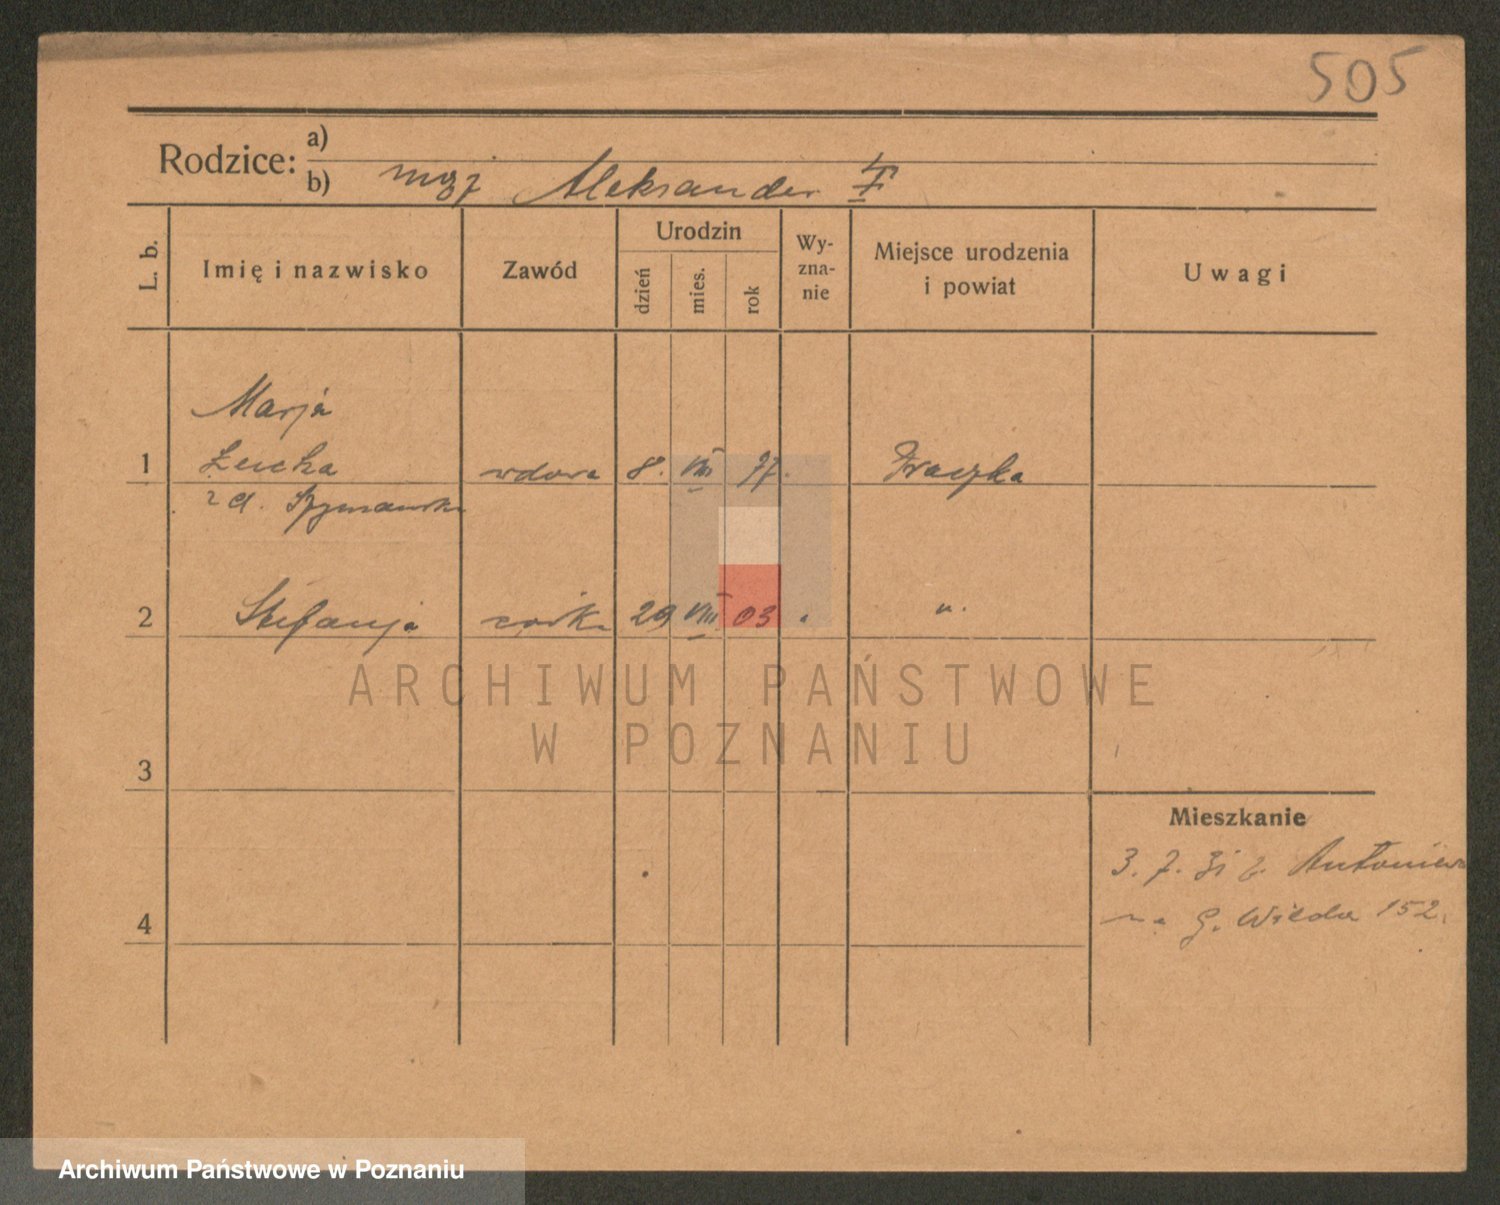 505
Rodzice: a)
b) mąż Aleksander
L. b. Imię i nazwisko Zawód Urodzin dzień mies. rok Wy-zna-nie Miejsce urodzenia i powiat Uwagi
Marja
1 wdowa 8. VIII 77.
2 Stefanja córka 29 VIII 03 "
3
ARCHIWUM PAŃSTWOWE
W POZNANIU
Mieszkanie
3. 7. 31 Antoniew
4 G. Wilda 152.
Archiwum Państwowe w Poznaniu